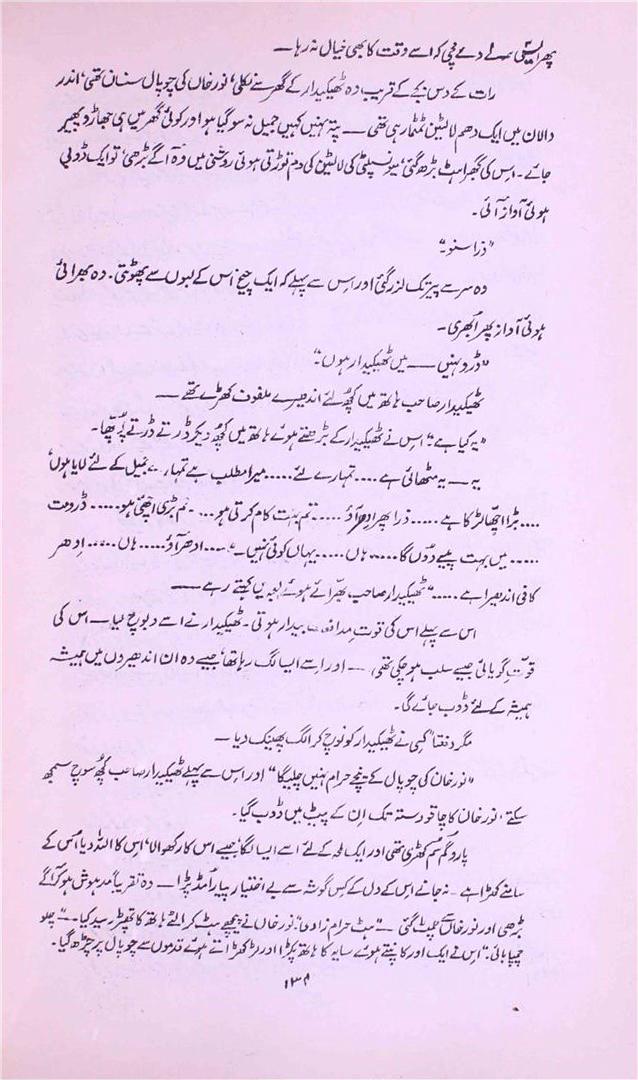 پھر ایسی دے مچی کہ اسے وقت کا بھی خیال نہ رہا —
رات کے دس بجے کے قریب وہ ٹھیکیدار کے گھر سے نکلی، نور خاں کی چوپال سنسان تھی، اندر
دالان میں ایک مدھم لالٹین ٹمٹما رہی تھی — پتہ نہیں کہیں جمیل نہ سو گیا ہو اور کوئی گھر میں ہی جھاڑو پھیر
جائے۔ اس کی گھبراہٹ بڑھ گئی، میونسپلٹی کی لالٹین کی دم توڑتی ہوئی روشنی میں وہ آگے بڑھی، تو ایک ڈوبی
ہوئی آواز آئی۔
"ذرا سنو"
وہ سر سے پیر تک لرز گئی اور اس سے پہلے کہ ایک چیخ اس کے لبوں سے پھوٹتی۔ وہ بھرائی
ہوئی آواز پھر ابھری۔
"ڈرو نہیں — میں ٹھیکیدار ہوں۔"
ٹھیکیدار صاحب ہاتھ میں کچھ لئے اندھیرے ملفوف کھڑے تھے —
"یہ کیا ہے" اس نے ٹھیکیدار کے بڑھتے ہوئے ہاتھ میں کچھ دیکر ڈرتے ڈرتے پُوچھا۔
یہ — یہ مٹھائی ہے .... تمہارے لئے .... میرا مطلب ہے تمہارے جمیل کے لئے لایا ہوں'
.... بڑا اچھا لڑکا ہے ..... ذرا پھر ادھر آؤ ..... تم بہت کام کرتی ہو ... تم بڑی اچھی ہو ..... ڈرو مت
..... میں بہت پیسے دُوں گا ..... ہاں ..... یہاں کوئی نہیں — ... ادھر آؤ ..... ہاں ..... ادھر
کافی اندھیرا ہے ....." ٹھیکیدار صاحب بھرائے ہوئے لہجہ میں کہتے رہے —
اس سے پہلے اس کی قوتِ مدافعت بیدار ہوتی۔ ٹھیکیدار نے اسے دبوچ لیا — اس کی
قوتِ گویائی جیسے سلب ہو چکی تھی — اور اسے ایسا لگ رہا تھا، جیسے وہ ان اندھیروں میں ہمیشہ
ہمیشہ کے لئے ڈوب جائے گی۔
مگر دفعتاً کسی نے ٹھیکیدار کو نوچ کر الگ پھینک دیا —
"نور خان کی چوپال کے نیچے حرام نہیں چلیگا" اور اس سے پہلے ٹھیکیدار صاحب کچھ سوچ سمجھ
سکتے، نور خان کا چاقو دستہ تک ان کے پیٹ میں ڈوب گیا۔
پارو گم سم کھڑی تھی اور ایک لمحہ کے لئے اسے ایسا لگا، جیسے اس کا رکھوالا، اس کا اللہ دیا اس کے
سامنے کھڑا ہے۔ نہ جانے اس کے دل کے کس گوشہ سے بے اختیار پیار اُمڈ پڑا — وہ تقریباً مدہوش ہو کر آگے
بڑھی اور نور خاں سے لپٹ گئی — "ہٹ حرام زادی" نور خاں نے پیچھے ہٹ کر الٹے ہاتھ کا تھپڑ رسید کیا — "چلو
چمپا بائی۔" اس نے ایک اور کانپتے ہوئے سایہ کا ہاتھ پکڑا اور لڑکھڑاتے ہوئے قدموں سے چوپال پر چڑھ گیا۔
۱۳۸